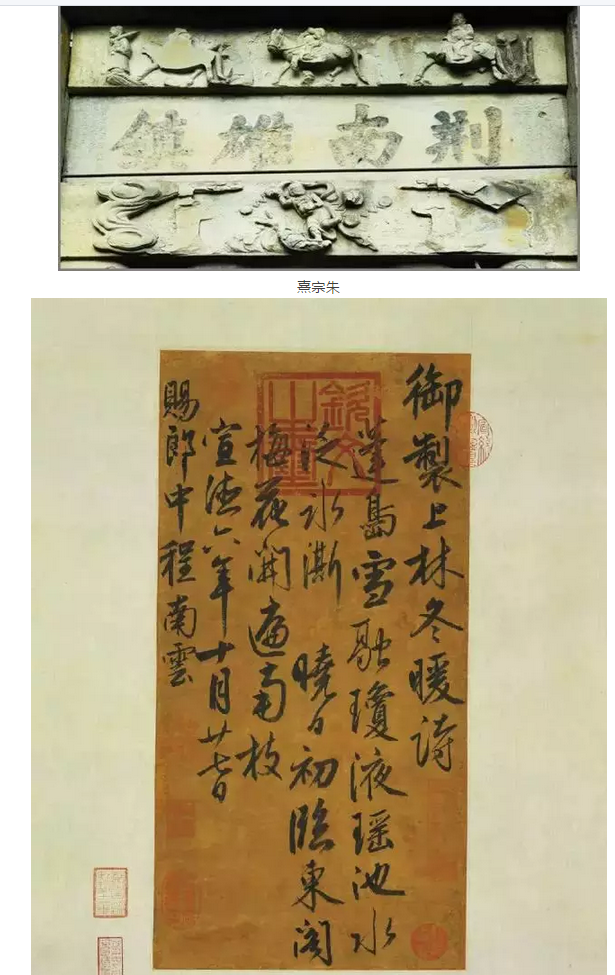 荆南雄鎮
熹宗朱
御製上林冬暖詩
蓬島雪融瓊液瑶池水
泛冰澌 曉日初臨東閣
梅花開遍南枝
宣德六年十月廿七日
賜郎中程南雲
欽文之璽